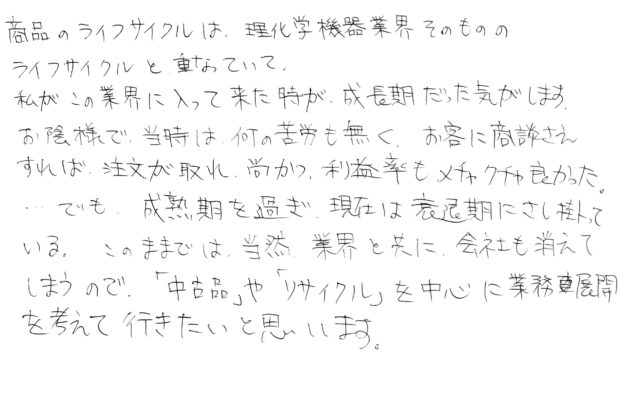 商品のライフサイクルは、理化学機器業界そのものの
ライフサイクルと重なっていて、
私がこの業界に入って来た時が、成長期だった気がします。
お陰様で、当時は、何の苦労も無く、お客に商談さえ
すれば、注文が取れ、尚かつ、利益率もメチャクチャ良かった。
…でも、成熟期を過ぎ、現在は衰退期にさし掛って
いる。このままでは、当然、業界と共に、会社も消えて
しまうので、「中古品」や「リサイクル」を中心に業務展開
を考えて行きたいと思います。